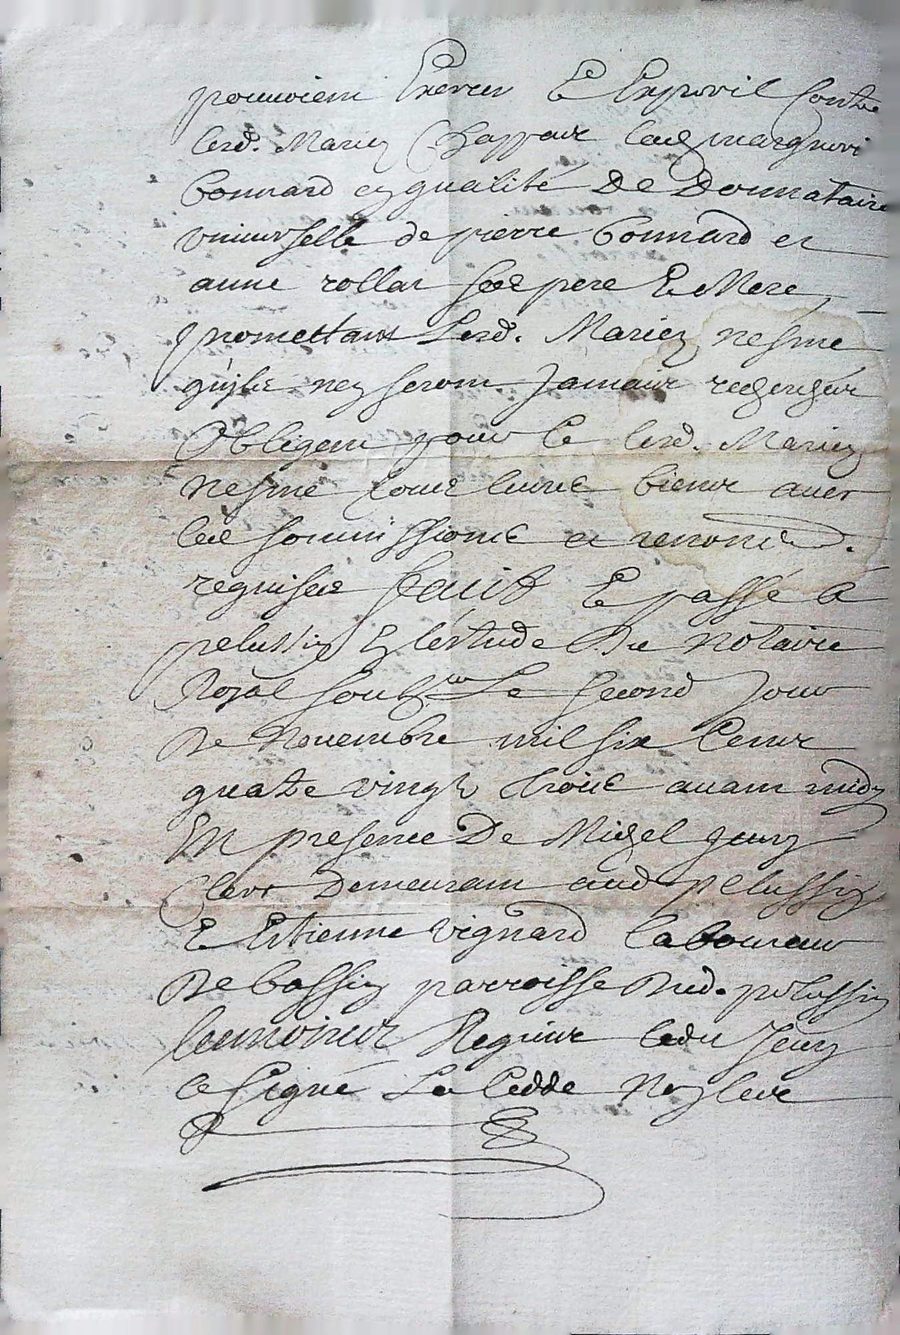 pouuoient Exercer Et Exposoit Contre
lesd. Mariez Chappuis lad. marguerite
bonnard en qualité De Donnataire
uniuerselle de pierre bonnard et
anne rollat ses pere Et Mere,
promettans Lesd. Mariez nesme
quils ney seront Jamais recherchez
Obligent pour Ce lesd. Mariez
nesme tous leurs biens auec
les soumissions et renond.
requises faict Et passé a
pelussin En lestude Du Notaire
Royal soubz.né Le second Jour
De Nouembre mil six Cens
quatre vingtz trois auant midy
En presence De Michel Jury
Clerc Demeurant aud. pelussin
Et Estienne vignard laboureur
De bossin parroisse Dud. pelussin
tesmoins Requis ledit Jury
a signé La Cedde Non les